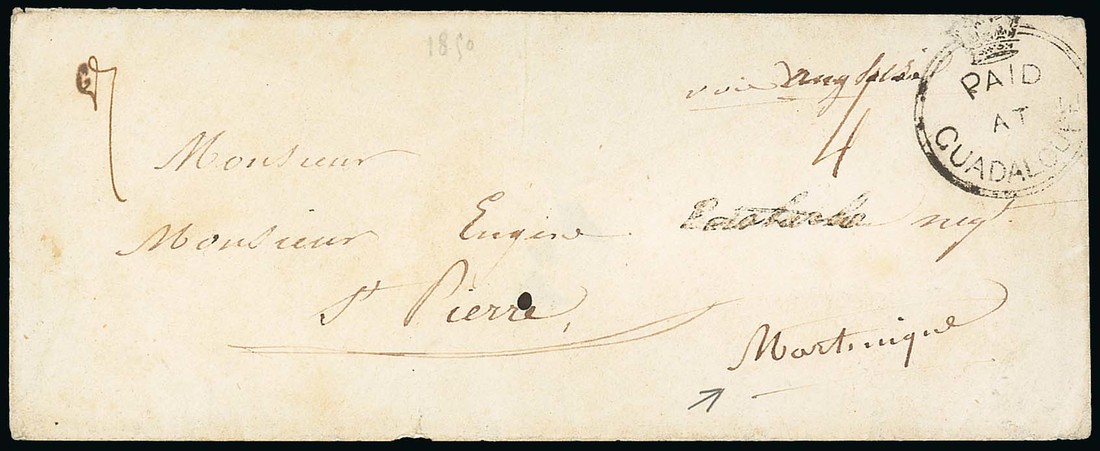 1850
voie anglaise
4
PAID
AT
GUADALOUPE
Monsieur
Monsieur Eugène negt.
St Pierre,
Martinique